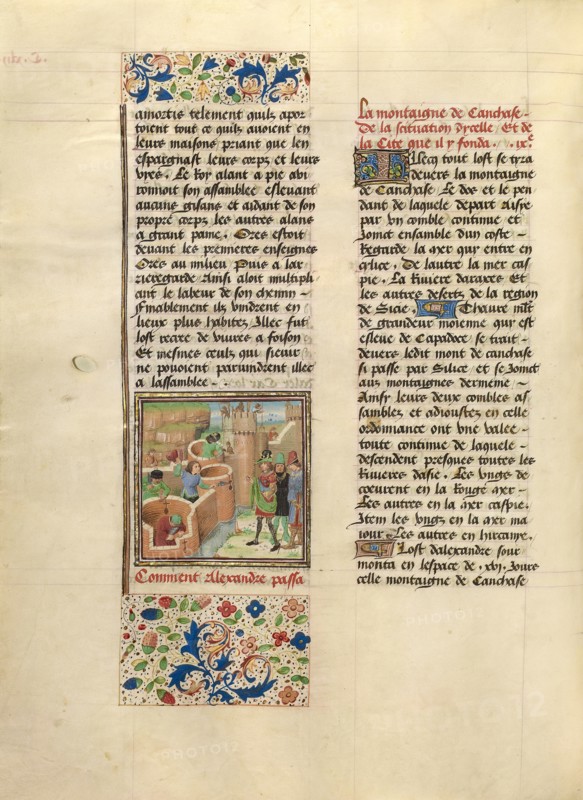 amortis telement quilz apor
toient tout ce quilz auoient en
leurs maisons priant que len
espargnast leurs corps et leurs
vyes. Le Roy alant a pie aui
ronnoit son assamblee esleuant
aucuns gisans et aidant de son
propre corps les autres alans
a grant paine. Ores estoit
deuant les premieres enseignes
Ores au milieu Puis a lar
rieregarde Ainsi aloit multipli
ant le labeur de son chemin -
Finablement ilz vindrent en
lieux plus habitez Illec fut
lost recree de viures a foison
Et mesmes ceulx qui sieuir
ne pouoient paruindrent illec
a lassamblee - -
Comment Alexandre passa
La montaigne de Canchase -
De la scituation dycelle Et de
la Cite que il y fonda. . ix.e
Illecq tout lost se tyra
deuers la montaigne
de Canchase Le dos et le pen
dant de laquele depart Aisye
par vn comble continue et
Joinct ensamble dun coste -
Regarde la mer qui entre en
cylice. De lautre la mer cas
pie. La Riuiere daraxes Et
les autres desertz de la region
de Sicie. Thaure mot
de grandeur moienne qui est
esleue de Capadoce se trait -
deuers ledit mont de canchase
si passe par Silice et se Joinct
aux montaignes dermenie -
Ainsy leurs deux combles as
samblez et adioustez en celle
ordonnance ont vne valee -
toute continue de laquele -
descendent presques toutes les
Riuieres dasie. Les vngs de
coeurent en la Rouge mer -
Les autres en la mer caspie.
Item les vngz en la mer ma
iour Les autres en hircanye.
Lost dalexandre sour
monta en lespace de .xvj. Jours
celle montaigne de Canchase
PHOTO12
PHOTO12
PHOTO12